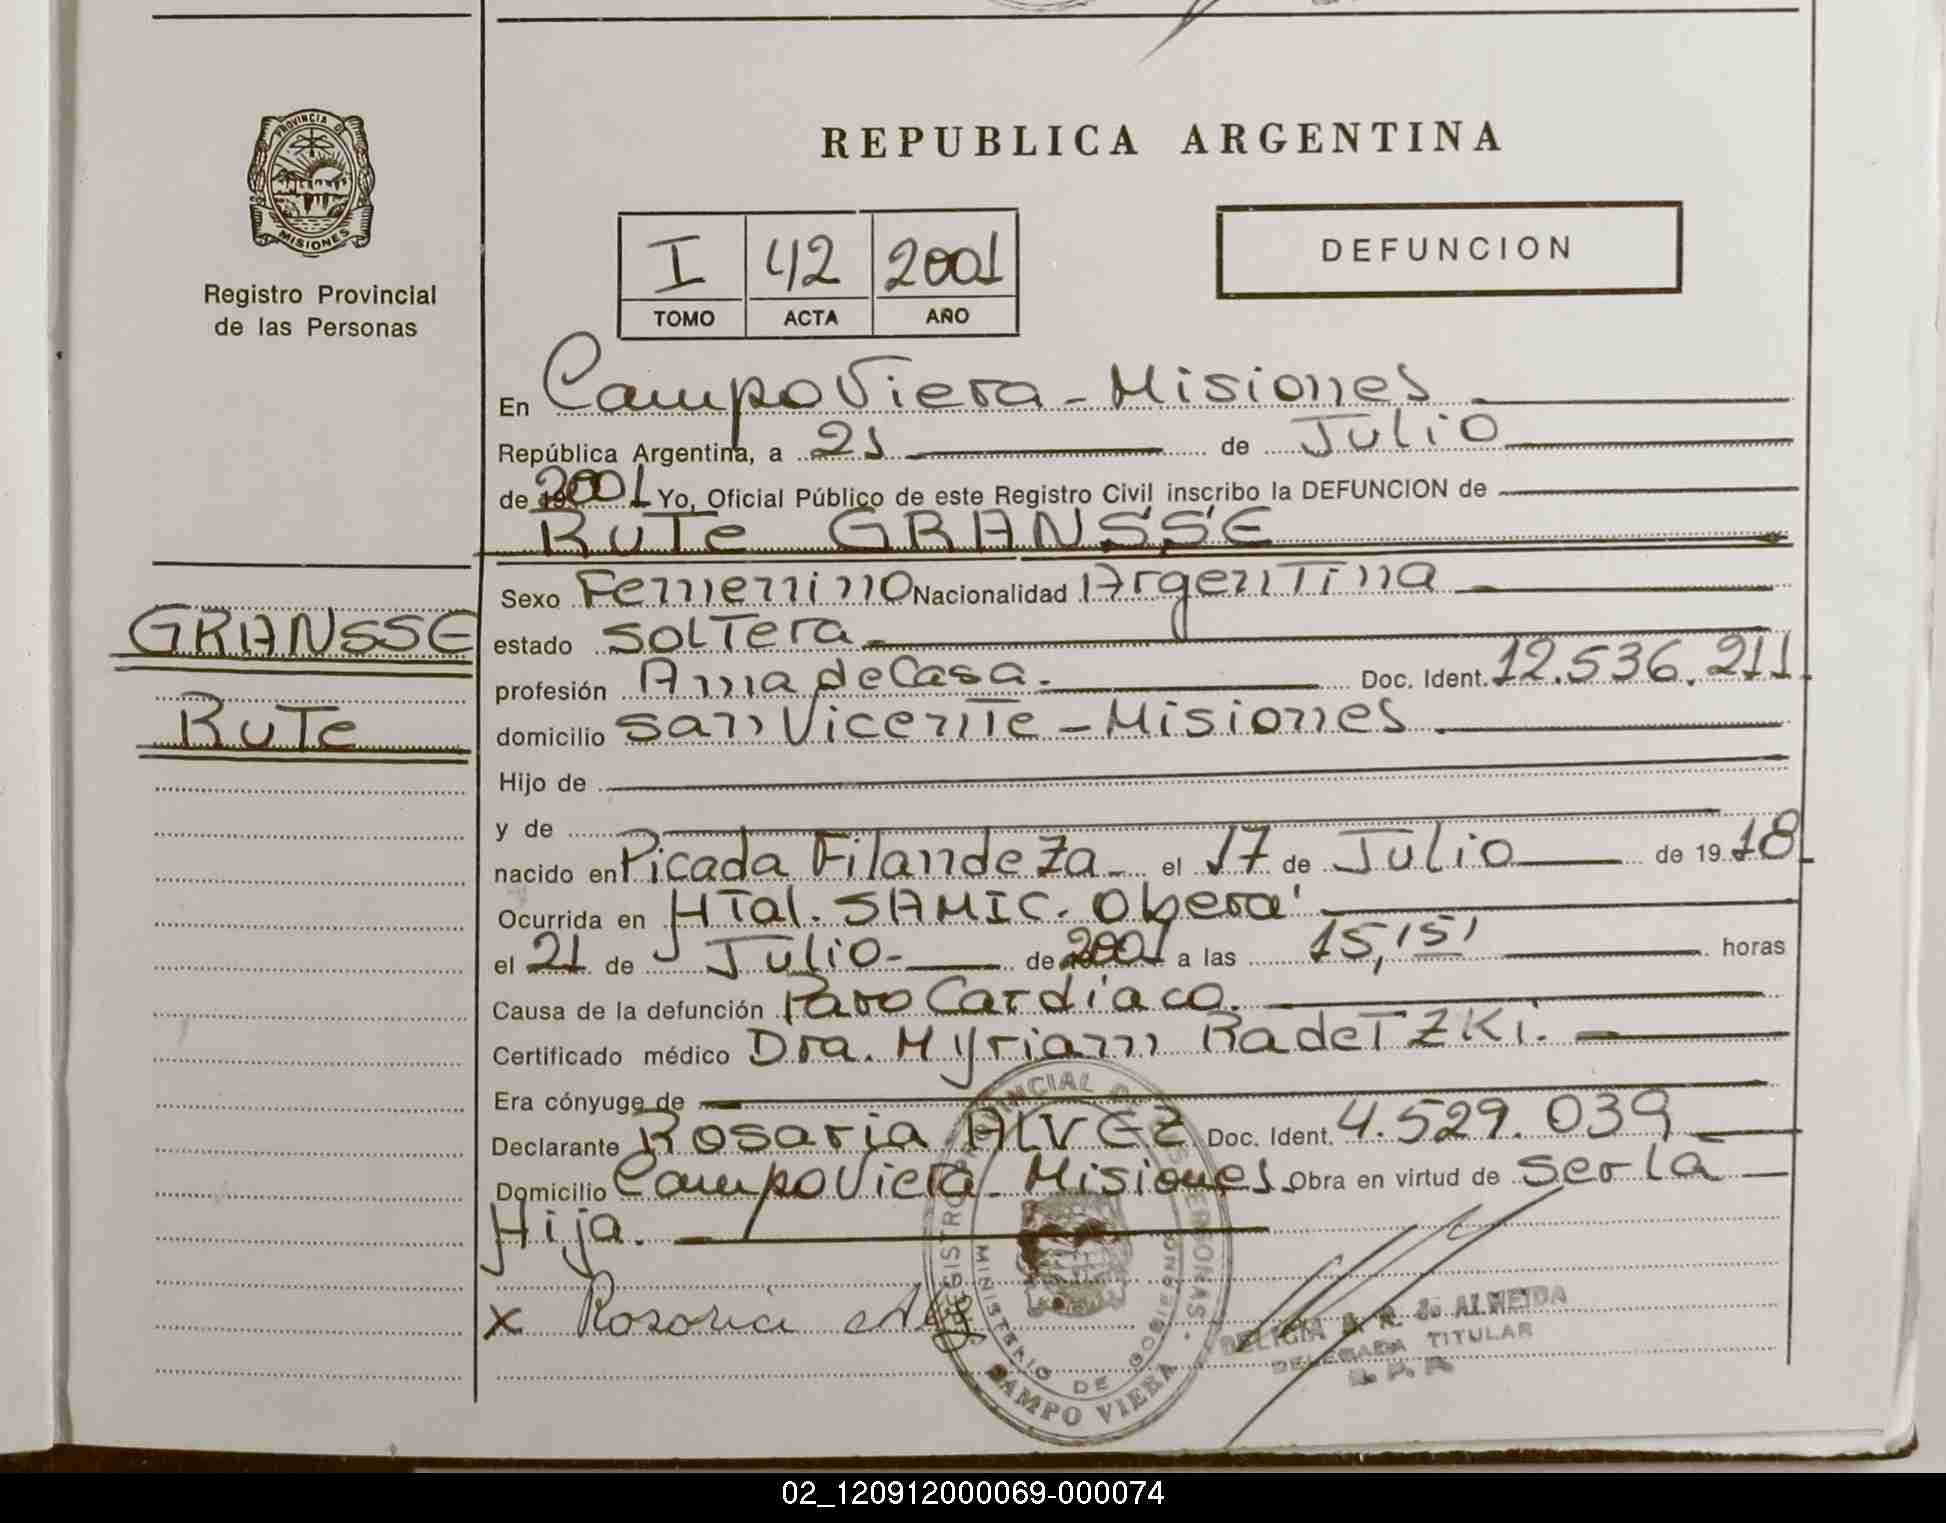 PROVINCIA DE
MISIONES
Registro Provincial
de las Personas
GRANSSE
RuTe
REPUBLICA ARGENTINA
I 42 2001
TOMO ACTA AÑO
DEFUNCION
En Campo Viera - Misiones
República Argentina, a 21 de Julio
de 2001 Yo, Oficial Público de este Registro Civil inscribo la DEFUNCION de
RuTe GRANSSE
Sexo Femenino Nacionalidad Argentina
estado Soltera
profesión Ama de Casa. Doc. Ident. 12.536.211
domicilio San Vicente - Misiones
Hijo de
y de
nacido en Picada Filandeza el 17 de Julio de 1918
Ocurrida en HTal. SAMIC. Oberá
el 21 de Julio - de 2001 a las 15,15' horas
Causa de la defunción Paro Cardíaco.
Certificado médico Dra. Myriam RadeTZKi.
Era cónyuge de
Declarante Rosaria ALVEZ Doc. Ident. 4.529.039
Domicilio Campo Viera - Misiones Obra en virtud de Ser la
Hija.
x Rosaria
REGISTRO PROVINCIAL DE LAS PERSONAS
MINISTERIO DE GOBIERNO
CAMPO VIERA
DELICIA S. R. de ALMEIDA
DELEGADA TITULAR
R. P. P.
02_120912000069-000074